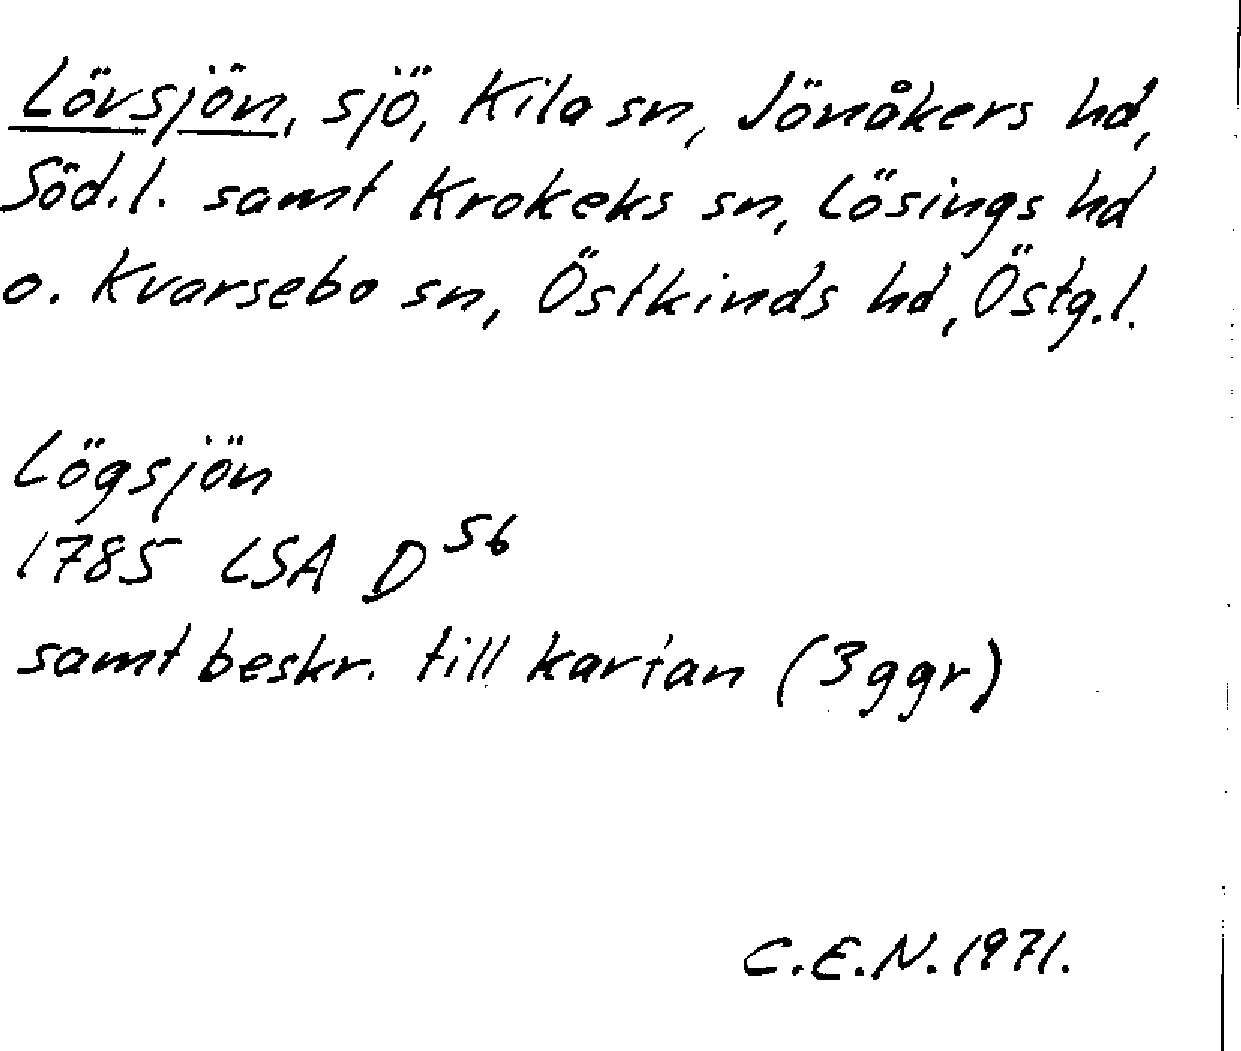 Lövsjön, sjö, Kila sn, Jönåkers hd,
Söd.l. samt Krokeks sn, Lösings hd
o. Kvarsebo sn, Östkinds hd, Östg.l.
Lögsjön
1785 LSA D 56
samt beskr. till kartan (3 ggr)
C.E.N. 1971.